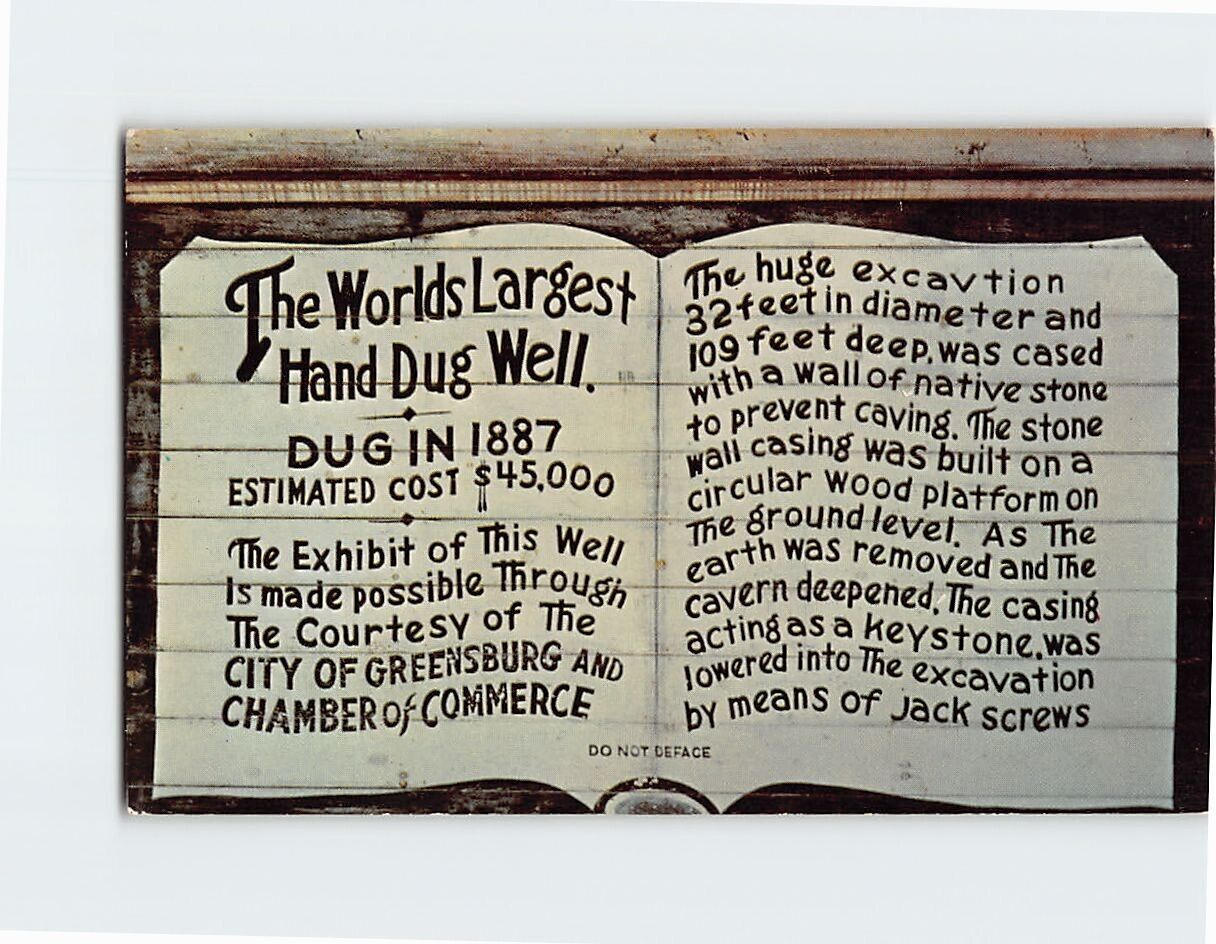 The Worlds Largest
Hand Dug Well.
DUG IN 1887
ESTIMATED COST $45,000
The Exhibit of This Well
Is made possible Through
The Courtesy of The
CITY OF GREENSBURG AND
CHAMBER of COMMERCE
The huge excavtion
32 feet in diameter and
109 feet deep, was cased
with a wall of native stone
to prevent caving. The stone
wall casing was built on a
circular wood platform on
The ground level. As The
earth was removed and The
cavern deepened, The casing
acting as a keystone, was
lowered into The excavation
by means of Jack screws
DO NOT DEFACE